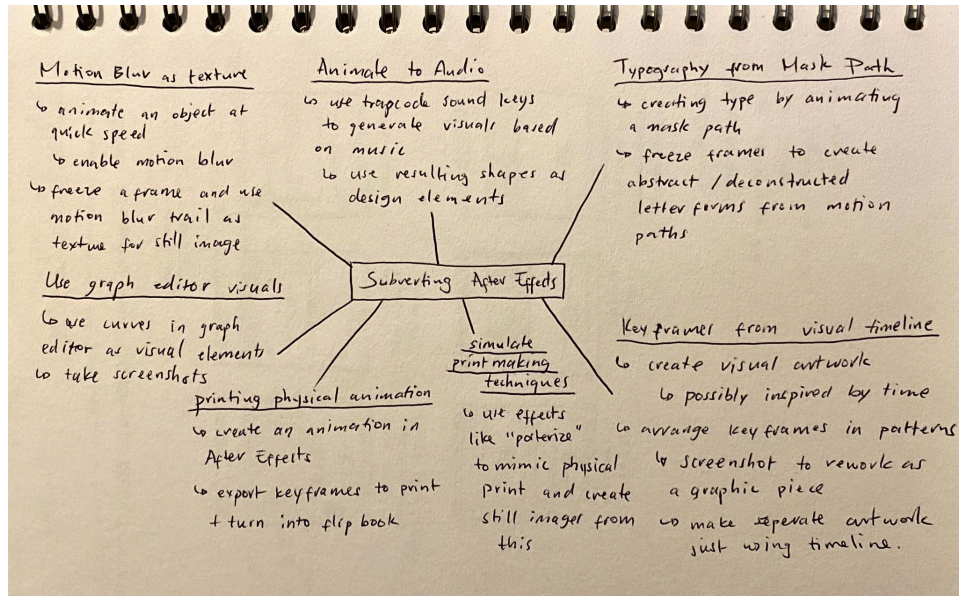 Motion Blur as texture
↳ animate an object at
quick speed
↳ enable motion blur
↳ freeze a frame and use
motion blur trail as
texture for still image
Animate to Audio
↳ use trapcode sound keys
to generate visuals based
on music
↳ use resulting shapes as
design elements
Typography from Mask Path
↳ creating type by animating
a mask path
↳ freeze frames to create
abstract / deconstructed
letter forms from motion
paths
Subverting After Effects
Use graph editor visuals
↳ use curves in graph
editor as visual elements
↳ take screenshots
printing physical animation
↳ create an animation in
After Effects
↳ export keyframes to print
+ turn into flip book
simulate
printmaking
techniques
↳ use effects
like "posterize"
to mimic physical
print and create
still images from
this
Keyframes from visual timeline
↳ create visual artwork
↳ possibly inspired by time
↳ arrange keyframes in patterns
↳ screenshot to rework as
a graphic piece
↳ make seperate artwork
just using timeline.